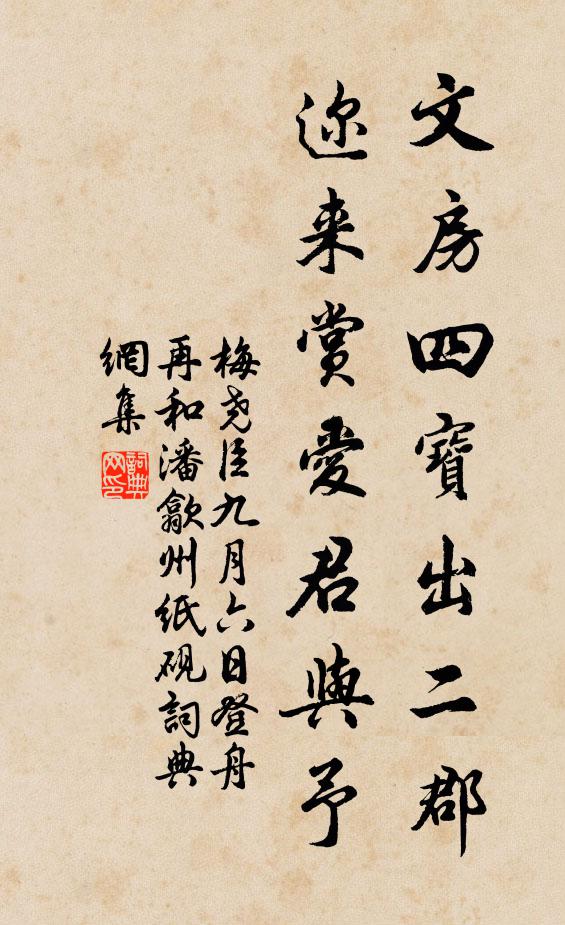 文房四寶出二郡
迩来赏愛君與予
梅尧臣九月六日登舟
再和潘歙州纸砚詞典
網集
詞典網印